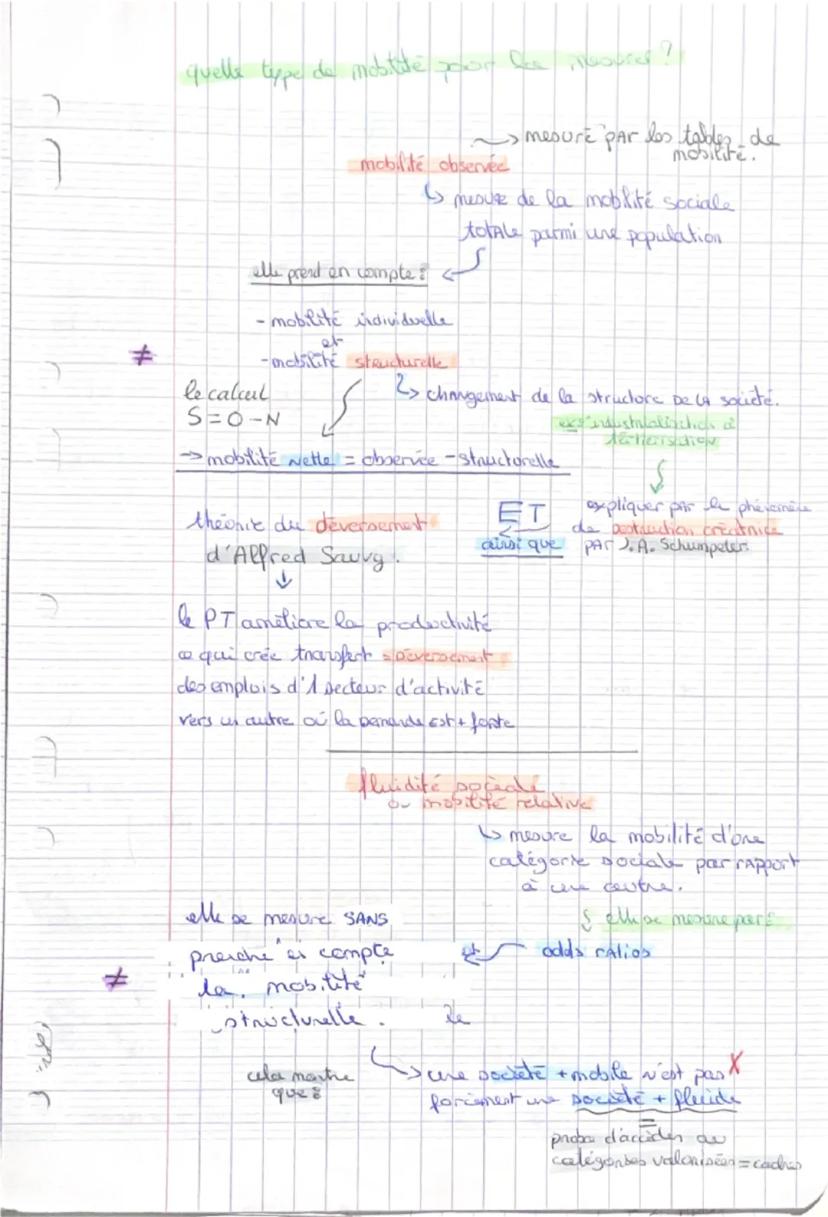 quelle type de mobilité pour les mesures ?
~> mesuré par les tables de
mobilité.
mobilité observée
↳ mesure de la mobilité sociale
totale parmi une population
elle prend en compte :
- mobilité individuelle
et
≠
- mobilité structurelle
le calcul
S = O - N
↳ changement de la structure DE LA société.
ex : industrialisation à
tertiarisation
→ mobilité nette = observée - structurelle
théorie du déversement
d'Alfred Sauvy.
ET
ainsi que
expliquer par le phénomène
de destruction créatrice
PAR J. A. Schumpeter.
le PT améliore la productivité
ce qui crée transfert = déversement
des emplois d'1 secteur d'activité
vers un autre où la demande est + forte
fluidité sociale
ou mobilité relative
↳ mesure la mobilité d'une
catégorie sociale par rapport
à une autre.
elle se mesure SANS
prendre en compte
≠
la mobilité
structurelle.
le
elle se mesure par :
odds ratios
et
cela montre
que :
→ une société + mobile n'est pas X
forcément une société + fluide
=
proba d'accéder au
catégories valorisées = cadres